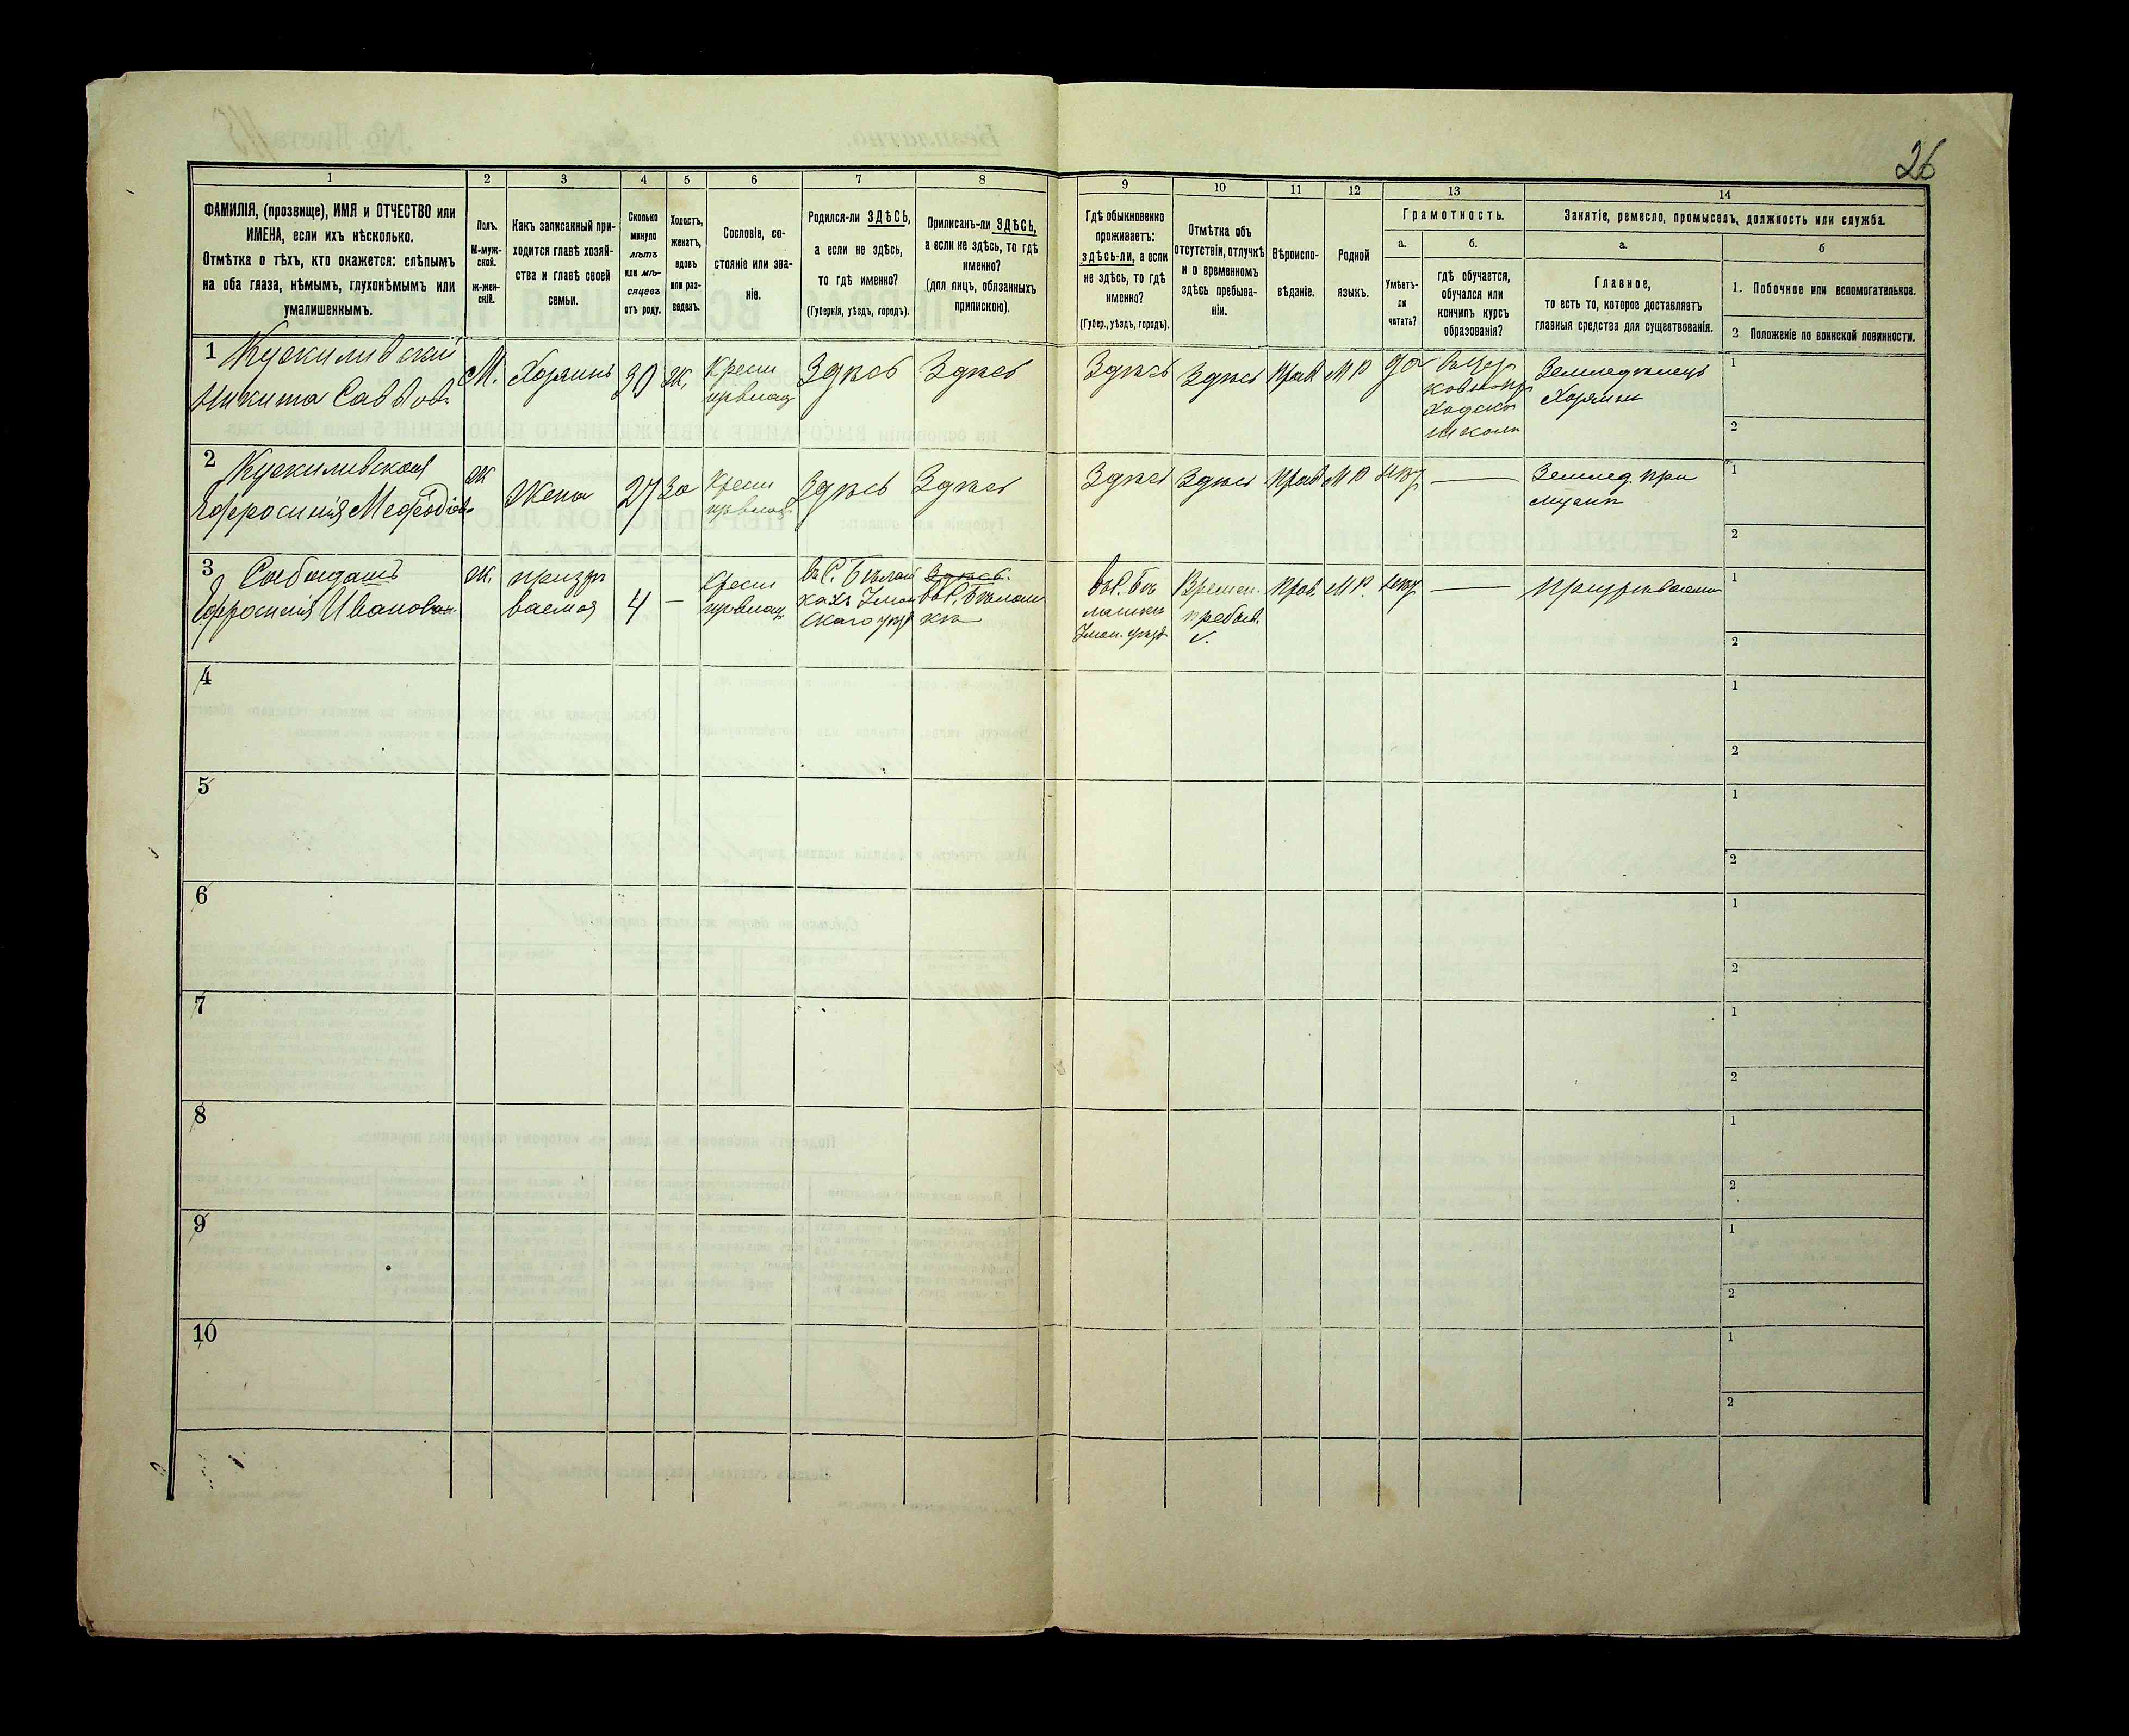 26
1
2
3
4
5
6
7
8
9
10
11
12
13
14
ФАМИЛІЯ, (прозвище), ИМЯ и ОТЧЕСТВО или
ИМЕНА, если ихъ нѣсколько.
Отмѣтка о тѣхъ, кто окажется: слѣпымъ
на оба глаза, нѣмымъ, глухонѣмымъ или
умалишеннымъ.
Полъ.
М-муж-
ской.
ж-жен-
скій.
Какъ записанный при-
ходится главѣ хозяй-
ства и главѣ своей
семьи.
Сколько
минуло
лѣтъ
или мѣ-
сяцевъ
отъ роду.
Холостъ,
женатъ,
вдовъ
или раз-
веденъ.
Сословіе, со-
стояніе или зва-
ніе.
Родился-ли ЗДѢСЬ,
а если не здѣсь,
то гдѣ именно?
(Губернія, уѣздъ, городъ).
Приписанъ-ли ЗДѢСЬ,
а если не здѣсь, то гдѣ
именно?
(для лицъ, обязанныхъ
припискою).
Гдѣ обыкновенно
проживаетъ:
здѣсь-ли, а если
не здѣсь, то гдѣ
именно?
(Губер., уѣздъ, городъ).
Отмѣтка объ
отсутствіи, отлучкѣ
и о временномъ
здѣсь пребыва-
ніи.
Вѣроиспо-
вѣданіе.
Родной
языкъ.
Грамотность.
а.
Умѣетъ-
ли
читать?
б.
гдѣ обучается,
обучался или
кончилъ курсъ
образованія?
Занятіе, ремесло, промыселъ, должность или служба.
а.
Главное,
то есть то, которое доставляетъ
главныя средства для существованія.
б
1. Побочное или вспомогательное.
2 Положеніе по воинской повинности.
1
Никита Саввовъ
М.
Хозяинъ
30
Ж.
Крест
Здѣсь
Здѣсь
Здѣсь
Здѣсь
Прав
МР
да
школѣ
Земледѣлецъ
Хозяинъ
1
2
2
Ефросинія Мефодіев
Ж
Жена
27
За
Крест
Здѣсь
Здѣсь
Здѣсь
Здѣсь
Прав
МР
нѣт
—
Землед. при
мужѣ
1
2
3
Ефросинія Иванова
Ж.
призрѣ
ваемая
4
—
Крест
въ С. Бѣлаш
ках Уман
скаго уѣз
Здѣсь.
въ С. Бѣлаш
кѣ
въ С. Бѣ
лашкѣ
Уман. уѣзд.
Времен.
пребыв.
V.
Прав.
МР.
нѣт
—
Призрѣваемая
1
2
4
1
2
5
1
2
6
1
2
7
1
2
8
1
2
9
1
2
10
1
2